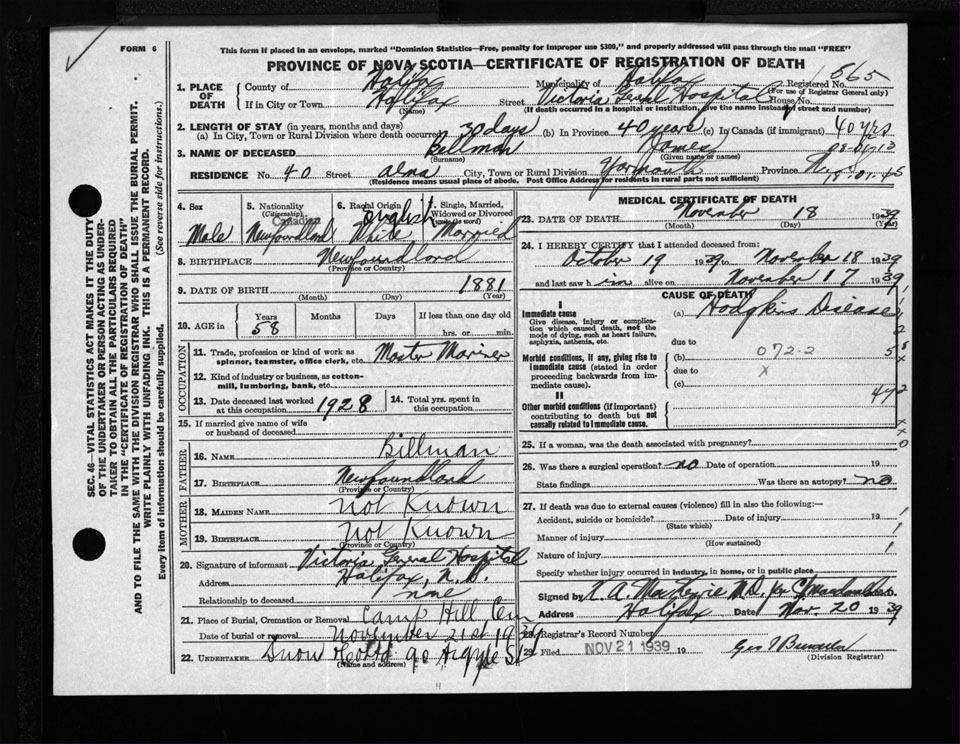 FORM 6
This form if placed in an envelope, marked "Dominion Statistics—Free, penalty for improper use $300," and properly addressed will pass through the mail "FREE"
PROVINCE OF NOVA SCOTIA—CERTIFICATE OF REGISTRATION OF DEATH
1. PLACE OF DEATH County of Halifax Municipality of Halifax Registered No. 565
(For use of Registrar General only)
If in City or Town Halifax Street Victoria Genl Hospital House No.
(Name) (If death occurred in a hospital or institution, give the name instead of street and number)
2. LENGTH OF STAY (in years, months and days)
(a) In City, Town or Rural Division where death occurred 30 days (b) In Province 40 years (c) In Canada (if immigrant) 40 yrs
3. NAME OF DECEASED Billman James
(Surname) (Given name or names)
RESIDENCE No. 40 Street Alma City, Town or Rural Division Yarmouth Province N.S.
(Residence means usual place of abode. Post Office Address for residents in rural parts not sufficient)
4. Sex Male
5. Nationality (Citizenship) Canadian Newfoundland
6. Racial Origin English White
7. Single, Married, Widowed or Divorced (write the word) Married
8. BIRTHPLACE Newfoundland
(Province or Country)
9. DATE OF BIRTH 1881
(Month) (Day) (Year)
10. AGE in Years 58 Months Days If less than one day old hrs. or min.
OCCUPATION
11. Trade, profession or kind of work as spinner, teamster, office clerk, etc. Master Mariner
12. Kind of industry or business, as cotton-mill, lumbering, bank, etc.
13. Date deceased last worked at this occupation 1928 14. Total yrs. spent in this occupation
15. If married give name of wife or husband of deceased
FATHER
16. NAME Billman
17. BIRTHPLACE Newfoundland
(Province or Country)
MOTHER
18. MAIDEN NAME Not Known
19. BIRTHPLACE Not Known
(Province or Country)
20. Signature of informant Victoria General Hospital
Address Halifax, N.S.
Relationship to deceased none
21. Place of Burial, Cremation or Removal Camp Hill Cem
Date of burial or removal November 21st 1939
22. UNDERTAKER Snow & Co Ltd 90 Argyle St
(Name and address)
MEDICAL CERTIFICATE OF DEATH
23. DATE OF DEATH November 18 1939
(Month) (Day) (Year)
24. I HEREBY CERTIFY that I attended deceased from:
October 19 1939 to November 18 1939
and last saw him alive on November 17 1939
CAUSE OF DEATH
I
Immediate cause
Give disease, injury or complication which caused death, not the mode of dying, such as heart failure, asphyxia, asthenia, etc.
(a) Hodgkins Disease
due to
Morbid conditions, if any, giving rise to immediate cause (stated in order proceeding backwards from immediate cause).
(b) 072-2
due to x
(c)
II
Other morbid conditions (if important) contributing to death but not causally related to immediate cause.
25. If a woman, was the death associated with pregnancy?
26. Was there a surgical operation? no Date of operation 19
State findings Was there an autopsy? no
27. If death was due to external causes (violence) fill in also the following:—
Accident, suicide or homicide? Date of injury 19
(State which)
Manner of injury
(How sustained)
Nature of injury
Specify whether injury occurred in industry, in home, or in public place
Signed by A. A. MacKenzie M.D.
Address Halifax Date Nov. 20 1939
28. Registrar's Record Number
29. Filed NOV 21 1939 19
(Division Registrar)
SEC. 46—VITAL STATISTICS ACT MAKES IT THE DUTY
OF THE UNDERTAKER OR PERSON ACTING AS UNDER-
TAKER TO OBTAIN ALL THE PARTICULARS REQUIRED
IN THE "CERTIFICATE OF REGISTRATION OF DEATH"
AND TO FILE THE SAME WITH THE DIVISION REGISTRAR WHO SHALL ISSUE THE BURIAL PERMIT.
WRITE PLAINLY WITH UNFADING INK. THIS IS A PERMANENT RECORD.
Every item of information should be carefully supplied. (See reverse side for instructions.)